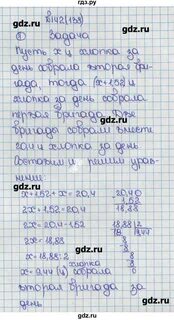 №1142(1138)
① Задача
Пусть x ц хлопка за
день собрала вторая бри-
гада, тогда (x+1,52) ц
хлопка за день собрала
первая бригада. Две
бригады собрали вместе
20,4 ц хлопка за день
Составим и решим урав-
нение:
x+1,52+x=20,4
2x+1,52=20,4
2x=20,4-1,52
2x=18,88
x=18,88:2
x=9,44 (ц) хлопка собрала
вторая бригада за
день
20,40
1,52
18,88
18,88 | 2
18 | 9,44
8
8
8
8
0